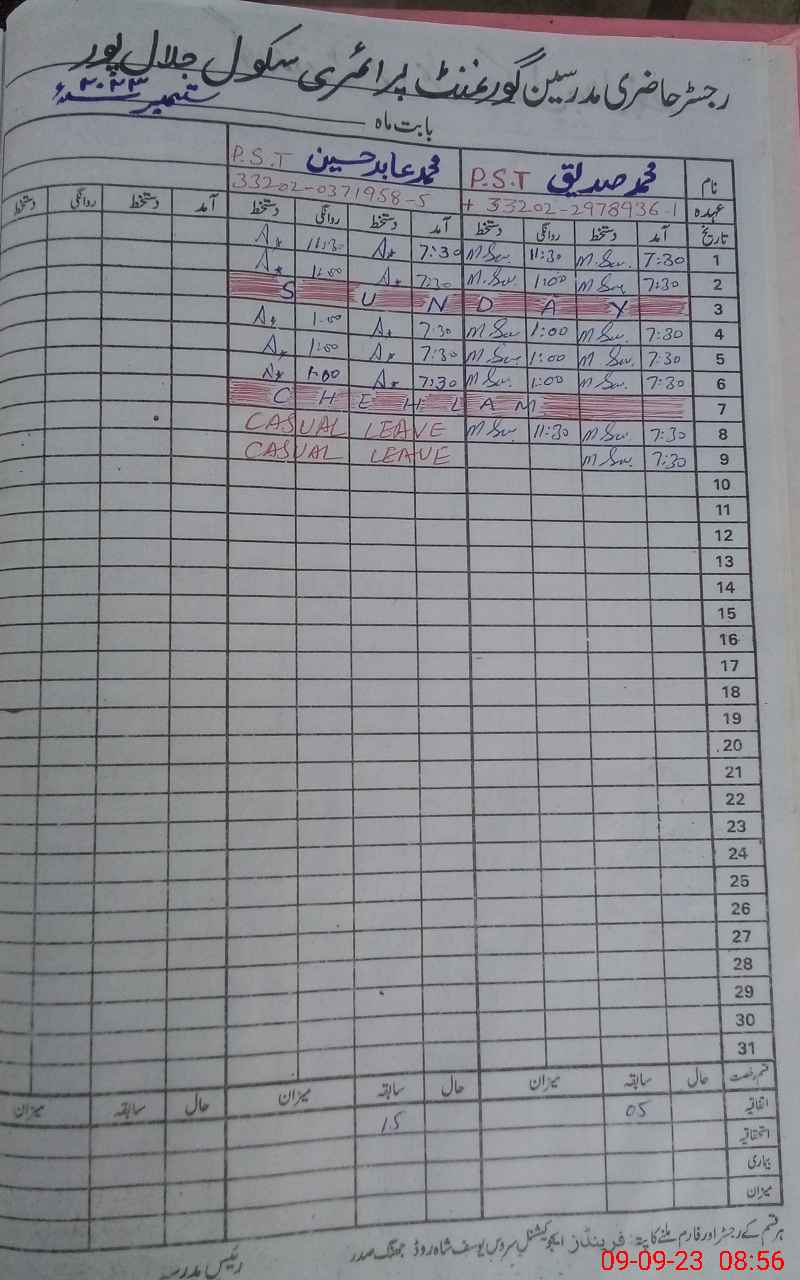 رجسٹر حاضری مدرسین گورنمنٹ پرائمری سکول جلال پور
بابت ماہ ستمبر ۲۰۲۳ء
نام محمد صدیق P.S.T محمد عابد حسین P.S.T
عہدہ 33202-2978936-1 33202-0371958-5
تاریخ آمد دستخط روانگی دستخط آمد دستخط روانگی دستخط آمد دستخط روانگی دستخط
1 7:30 M.Sw. 11:30 M Sw. 7:30 A* 11:30 A*
2 7:30 M Sw 1:00 M.Sw. 7:30 A* 1:00 A*
3 S U N D A Y
4 7:30 M Sw. 1:00 M Sw 7:30 A* 1:00 A*
5 7:30 M Sw. 1:00 M Sw 7:30 A* 1:00 A*
6 7:30 M Sw. 1:00 M Sw. 7:30 A* 1:00 A*
7 C H E H L A M
8 7:30 M Sw 11:30 M Sw. CASUAL LEAVE
9 7:30 M Sw. CASUAL LEAVE
10
11
12
13
14
15
16
17
18
19
20
21
22
23
24
25
26
27
28
29
30
31
قسم رخصت حال سابقہ میزان حال سابقہ میزان حال سابقہ میزان
اتفاقیہ 05 15
استحقاقیہ
بیماری
میزان
ہر قسم کے رجسٹر اور فارم ملنے کا پتہ: فرینڈز ایجوکیشنل سروس یوسف شاہ روڈ جھنگ صدر
رئیس مدرسہ
09-09-23 08:56